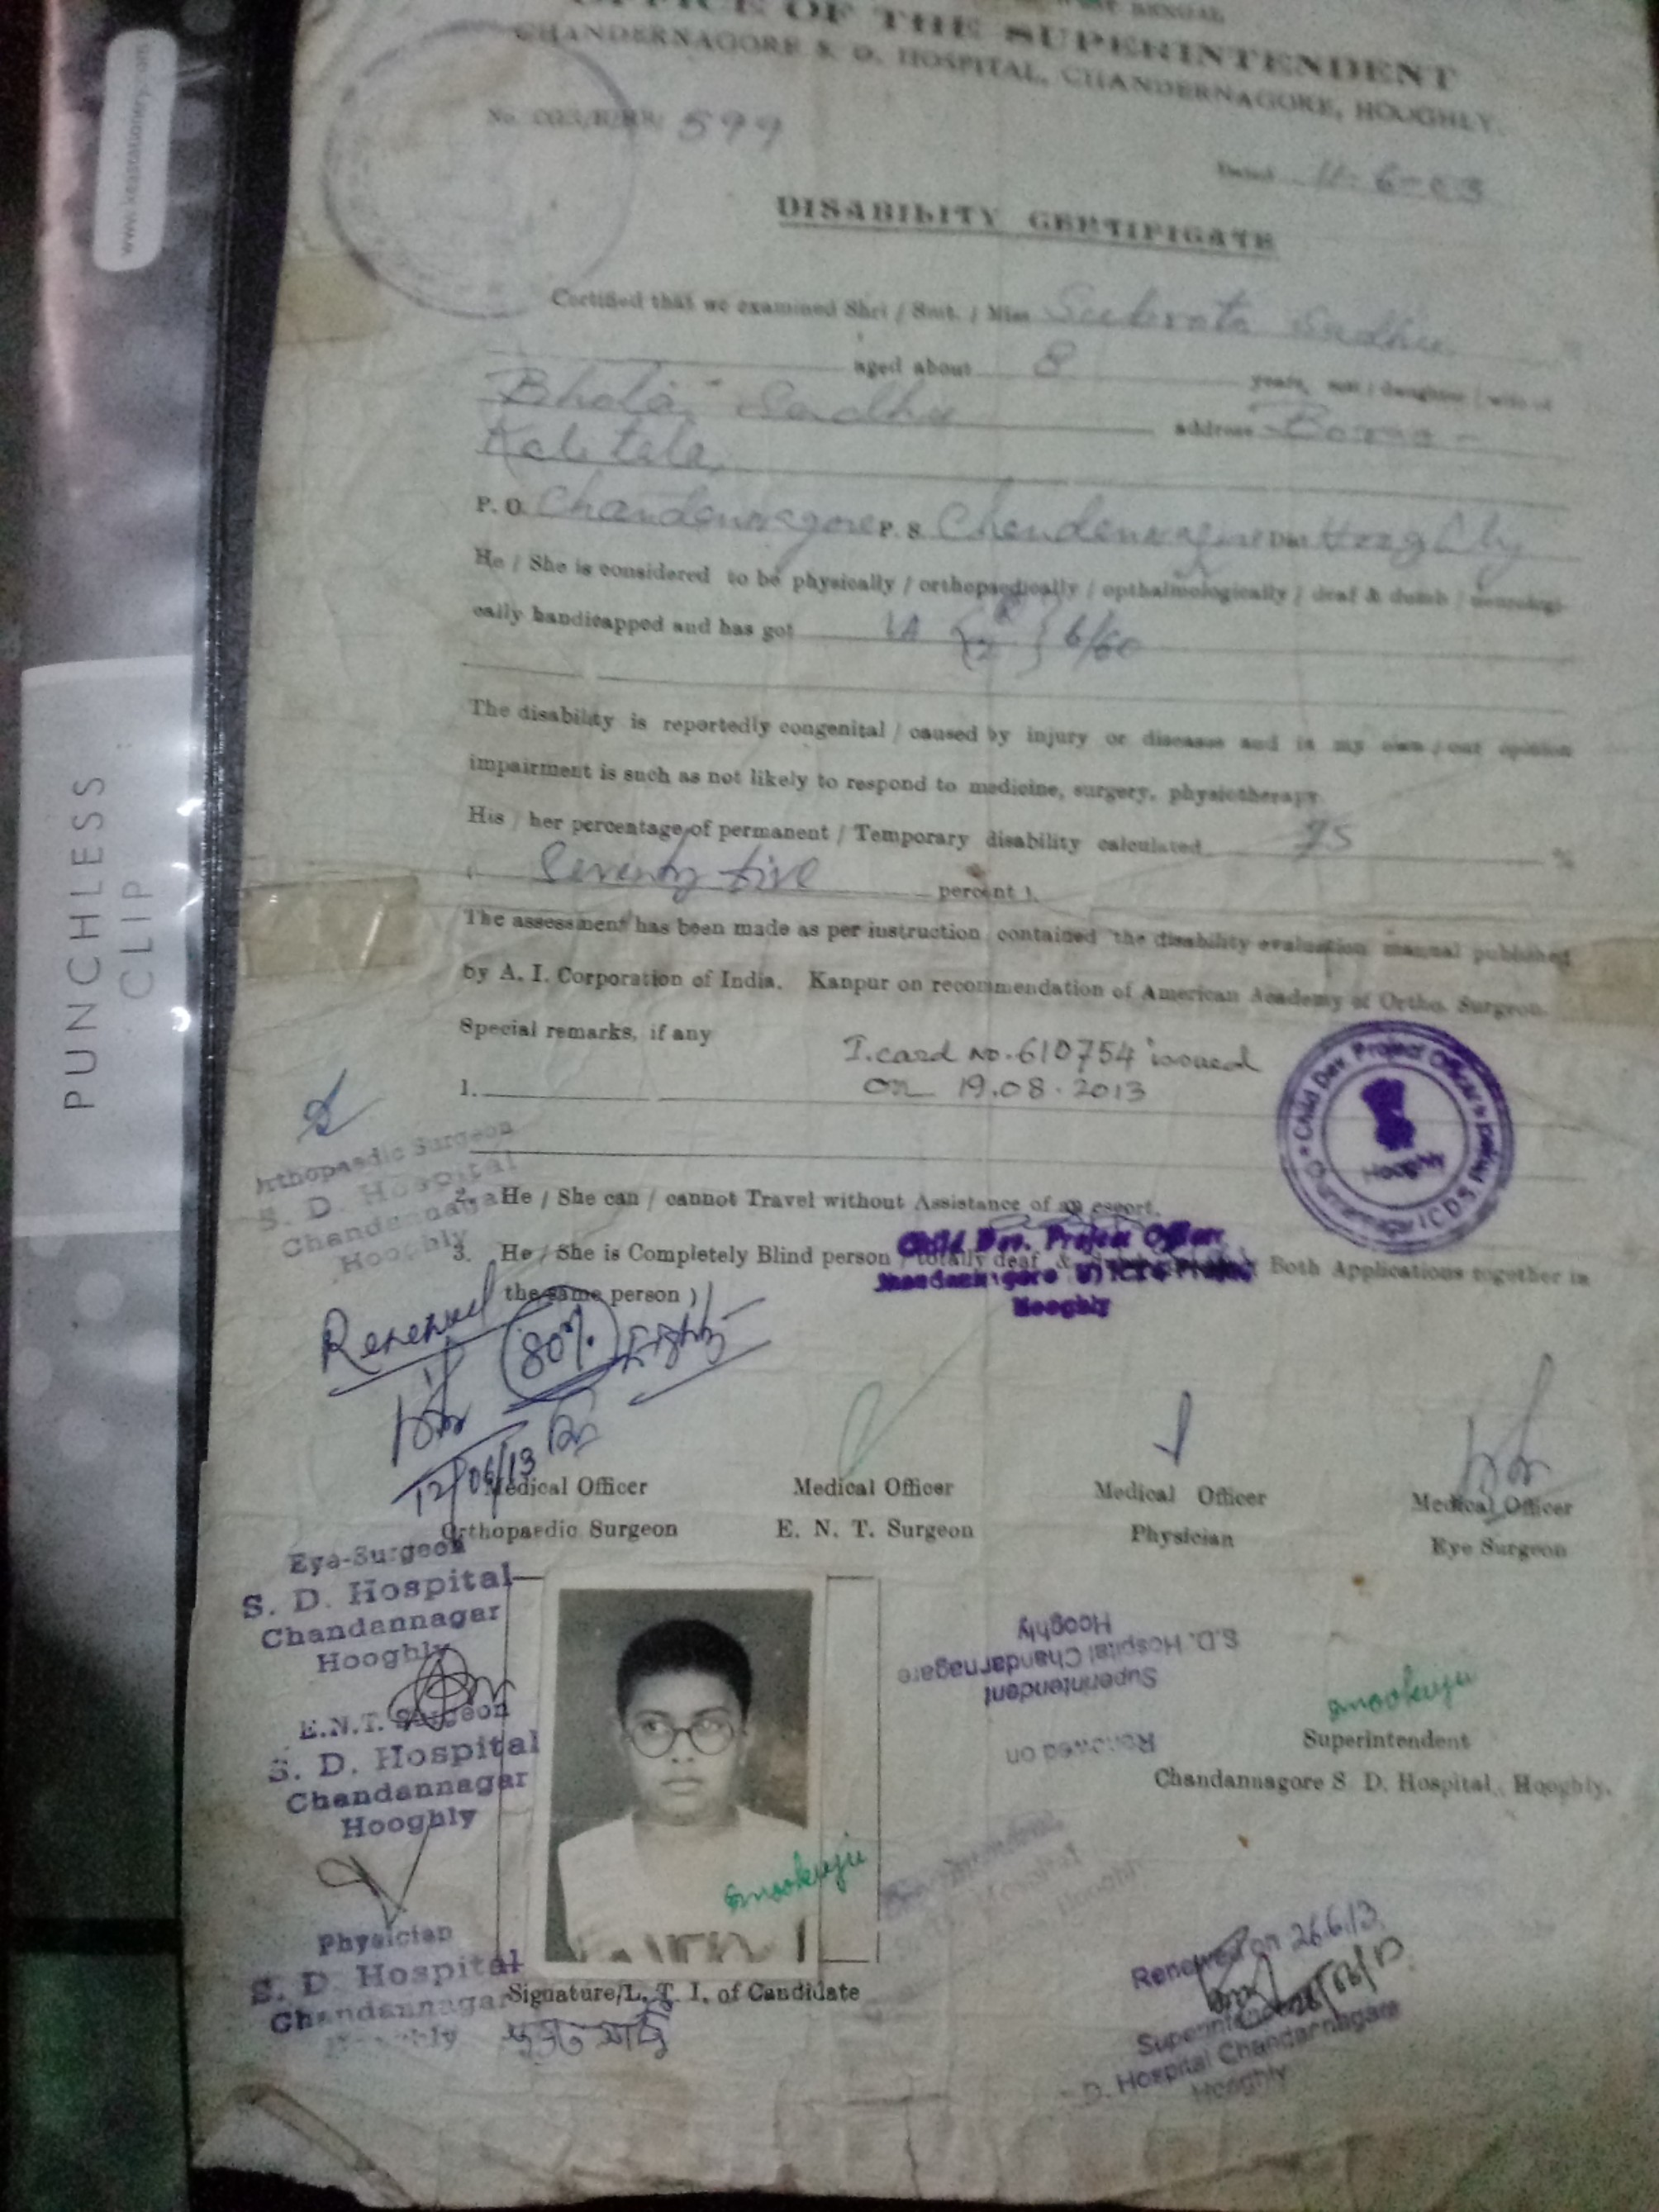 BENGAL
OFFICE OF THE SUPERINTENDENT
CHANDERNAGORE S. D. HOSPITAL, CHANDERNAGORE, HOOGHLY.
No. 599
Dated 11-6-03
DISABILITY CERTIFICATE
Certified that we examined Shri / Smt. / Miss Subrata Sadhu
aged about 8 years, son / daughter / wife of
Bholai Sadhu address
Kalitala,
P. O. Chandannagore P. S. Chandannagore Dist Hooghly
He / She is considered to be physically / orthopaedically / opthalmologically / deaf & dumb / neurologi-
cally handicapped and has got 6/60
The disability is reportedly congenital / caused by injury or disease and in my own / our opinion
impairment is such as not likely to respond to medicine, surgery, physiotherapy
His / her percentage of permanent / Temporary disability calculated 75 %
( Seventy five percent ).
The assessment has been made as per instruction contained the disability evaluation manual published
by A. I. Corporation of India. Kanpur on recommendation of American Academy of Ortho. Surgeon.
Special remarks, if any
I.card No. 610754 issued
1. on 19.08.2013
Child Dev. Project Officer's
ICDS Project
Hooghly
Orthopaedic Surgeon
S. D. Hospital
Chandannagar
Hooghly
2. He / She can / cannot Travel without Assistance of an escort.
3. He / She is Completely Blind person / totally deaf & Both Applications together in
the same person )
Child Dev. Project Officer
Hooghly
Renewed 80% Eighty
12/06/13
Medical Officer Medical Officer Medical Officer Medical Officer
Orthopaedic Surgeon E. N. T. Surgeon Physician Eye Surgeon
Eye-Surgeon
S. D. Hospital
Chandannagar
Hooghly
E.N.T. Surgeon
S. D. Hospital
Chandannagar
Hooghly
Physician
S. D. Hospital
Chandannagar
Renewed on
Superintendent
S.D. Hospital Chandarnagare
Hooghly
Superintendent
Chandannagore S D. Hospital, Hooghly.
Signature/L. T. I. of Candidate
সুব্রত সাধু
Renewed on 26.6.13.
Superintendent
D. Hospital Chandarnagare
Hooghly
PUNCHLESS
CLIP